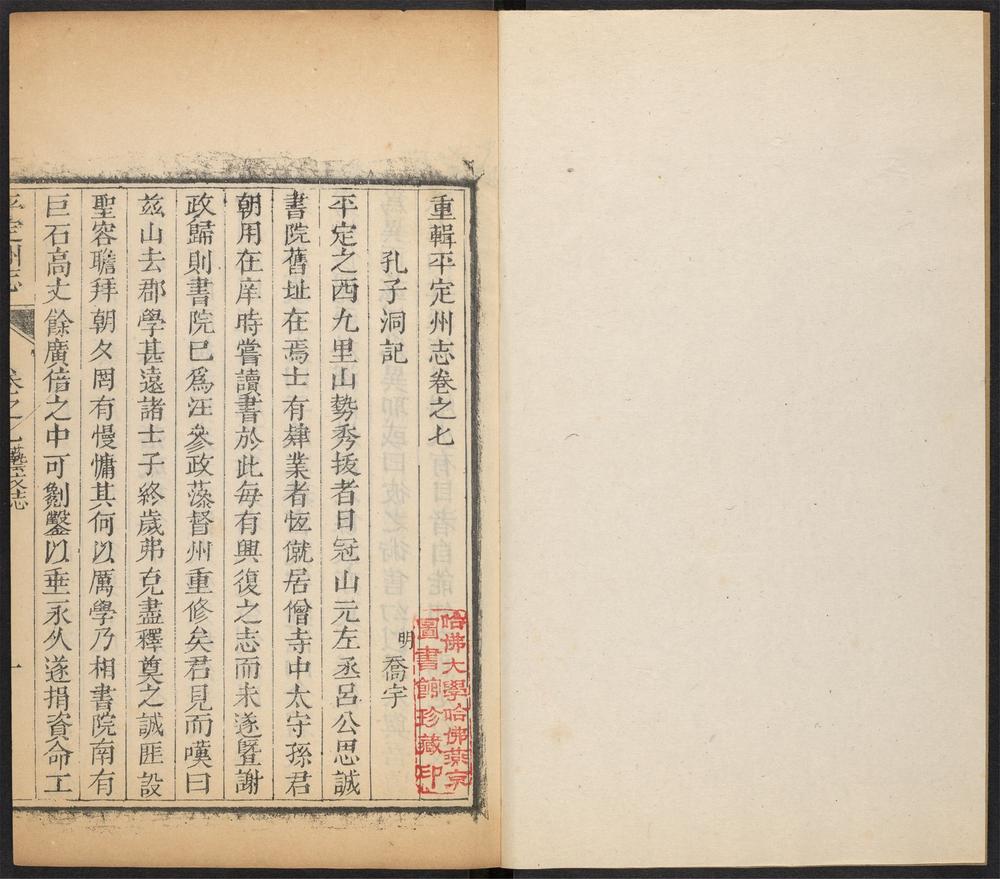 重輯平定州志卷之七
孔子洞記
明 喬宇
平定之西九里山勢秀拔者曰冠山元左丞呂公思誠
書院舊址在焉士有肄業者恆僦居僧寺中太守孫君
朝用在庠時嘗讀書於此每有興復之志而未遂暨謝
政歸則書院已爲汪參政藻督州重修矣君見而嘆曰
茲山去郡學甚遠諸士子終歲弗克盡釋奠之誠匪設
聖容瞻拜朝夕罔有慢慵其何以厲學乃相書院南有
巨石高丈餘廣倍之中可劖鑿以垂永久遂捐資命工
平定州志
卷之七藝文志
一
哈佛大學哈佛燕京
圖書館珍藏印